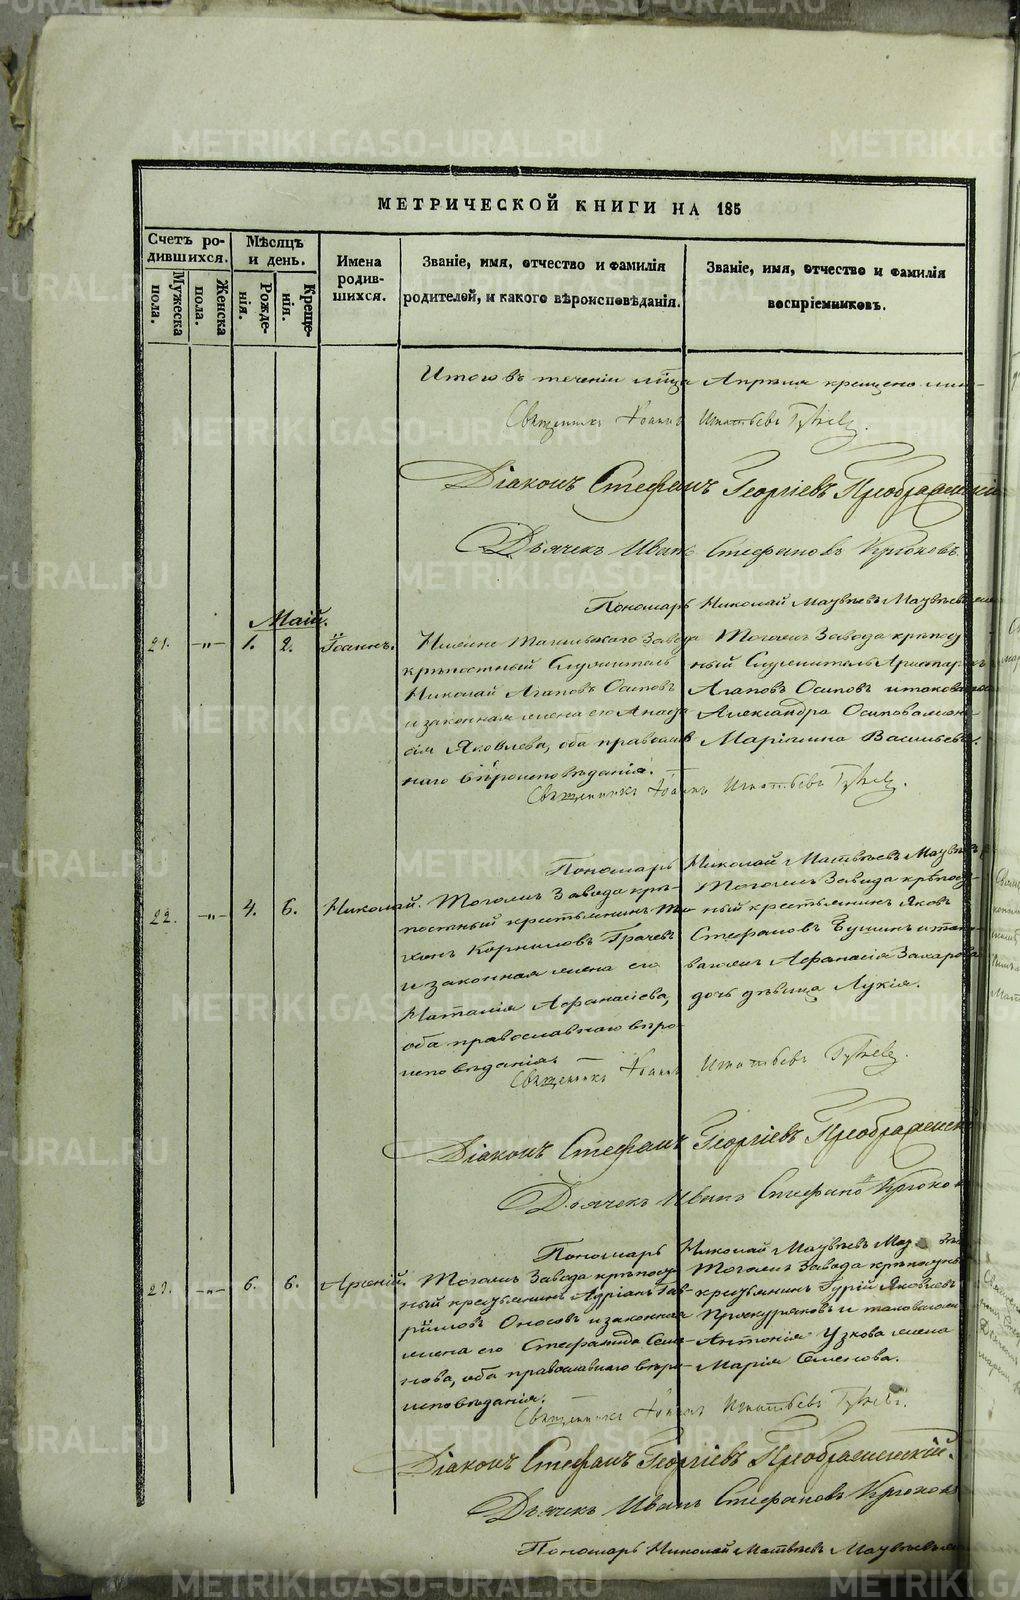 METRIKI.GASO-URAL.RU
МЕТРИЧЕСКОЙ КНИГИ НА 185
Счетъ ро-
дившихся.
Мужеска
пола.
Женска
пола.
Мѣсяцъ
и день.
Рожде-
нія.
Креще-
нія.
Имена
родив-
шихся.
Званіе, имя, отчество и фамилія
родителей, и какого вѣроисповѣданія.
Званіе, имя, отчество и фамилія
воспріемниковъ.
Итого въ теченіи мѣсяца Апрѣля крещено
Священникъ Іоаннъ Игнатьевъ
Діаконъ Стефанъ Георгіевъ Преображенскій
Дьячекъ Иванъ Стефановъ Крюковъ.
Пономарь Николай
Маій.
21. -„- 1. 2. Іоаннъ.
Нижне Тагильскаго Завода
крѣпостный Служитель
Николай Агаповъ Осиповъ
и законная жена его
Яковлева, оба православ
наго вѣроисповѣданія.
Тогожъ Завода крѣпост
ный Служитель
Агаповъ Осиповъ и
Александра Осипова жена
Маріамна Васильева.
Священникъ Іоаннъ Игнатьевъ
Пономарь Николай Матвѣевъ
22. -„- 4. 6. Николай.
Тогожъ Завода крѣ-
постный крестьянинъ Ти-
хонъ Корниловъ Грачевъ
и законная жена его
Наталія Афанасіева,
оба православнаго вѣро-
исповѣданія
Тогожъ Завода крѣпост-
ный крестьянинъ Яковъ
Стефановъ
Афанасія Захарова
дочь дѣвица Лукія.
Священникъ Іоаннъ Игнатьевъ
Діаконъ Стефанъ Георгіевъ Преображенск
Дьячекъ Иванъ Стефановъ Крюков
Пономарь Николай
23. -„- 6. 6. Арсеній.
Тогожъ Завода крѣпост
ный крестьянинъ Адріанъ Гав-
ріиловъ Оносовъ и законная
жена его Стефанида Семе-
нова, оба православнаго вѣро-
исповѣданія.
Тогожъ Завода крѣпостный
крестьянинъ Гурій Яковлевъ
Проскуряковъ и таковагожъ
Антонія Узкова жена
Марія Семенова.
Священникъ Іоаннъ Игнатьевъ
Діаконъ Стефанъ Георгіевъ Преображенскій.
Дьячекъ Иванъ Стефановъ Крюков
Пономарь Николай Матвѣевъ